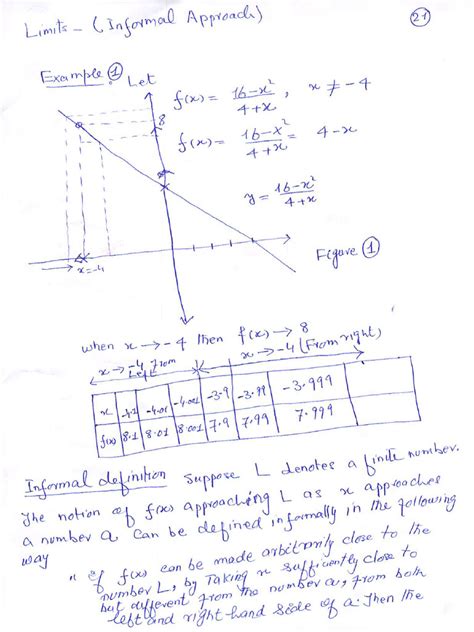 Limits - (Informal Approach)
21
Example ① Let
f(x) = 16-x²/4+x, x ≠ -4
f(x) = 16-x²/4+x = 4-x
8
y = 16-x²/4+x
Figure ①
x=-4
when x → -4 then f(x) → 8
x → -4 From Left
x → -4 (From right)
x -4.1 -4.01 -4.001 -3.9 -3.99 -3.999
f(x) 8.1 8.01 8.001 7.9 7.99 7.999
Informal definition Suppose L denotes a finite number.
The notion of f(x) approaching L as x approaches
a number a can be defined informally in the following
way
"if f(x) can be made arbitrarily close to the
number L, by Taking x sufficiently close to
but different from the number a, from both
left and right hand side of a. Then the